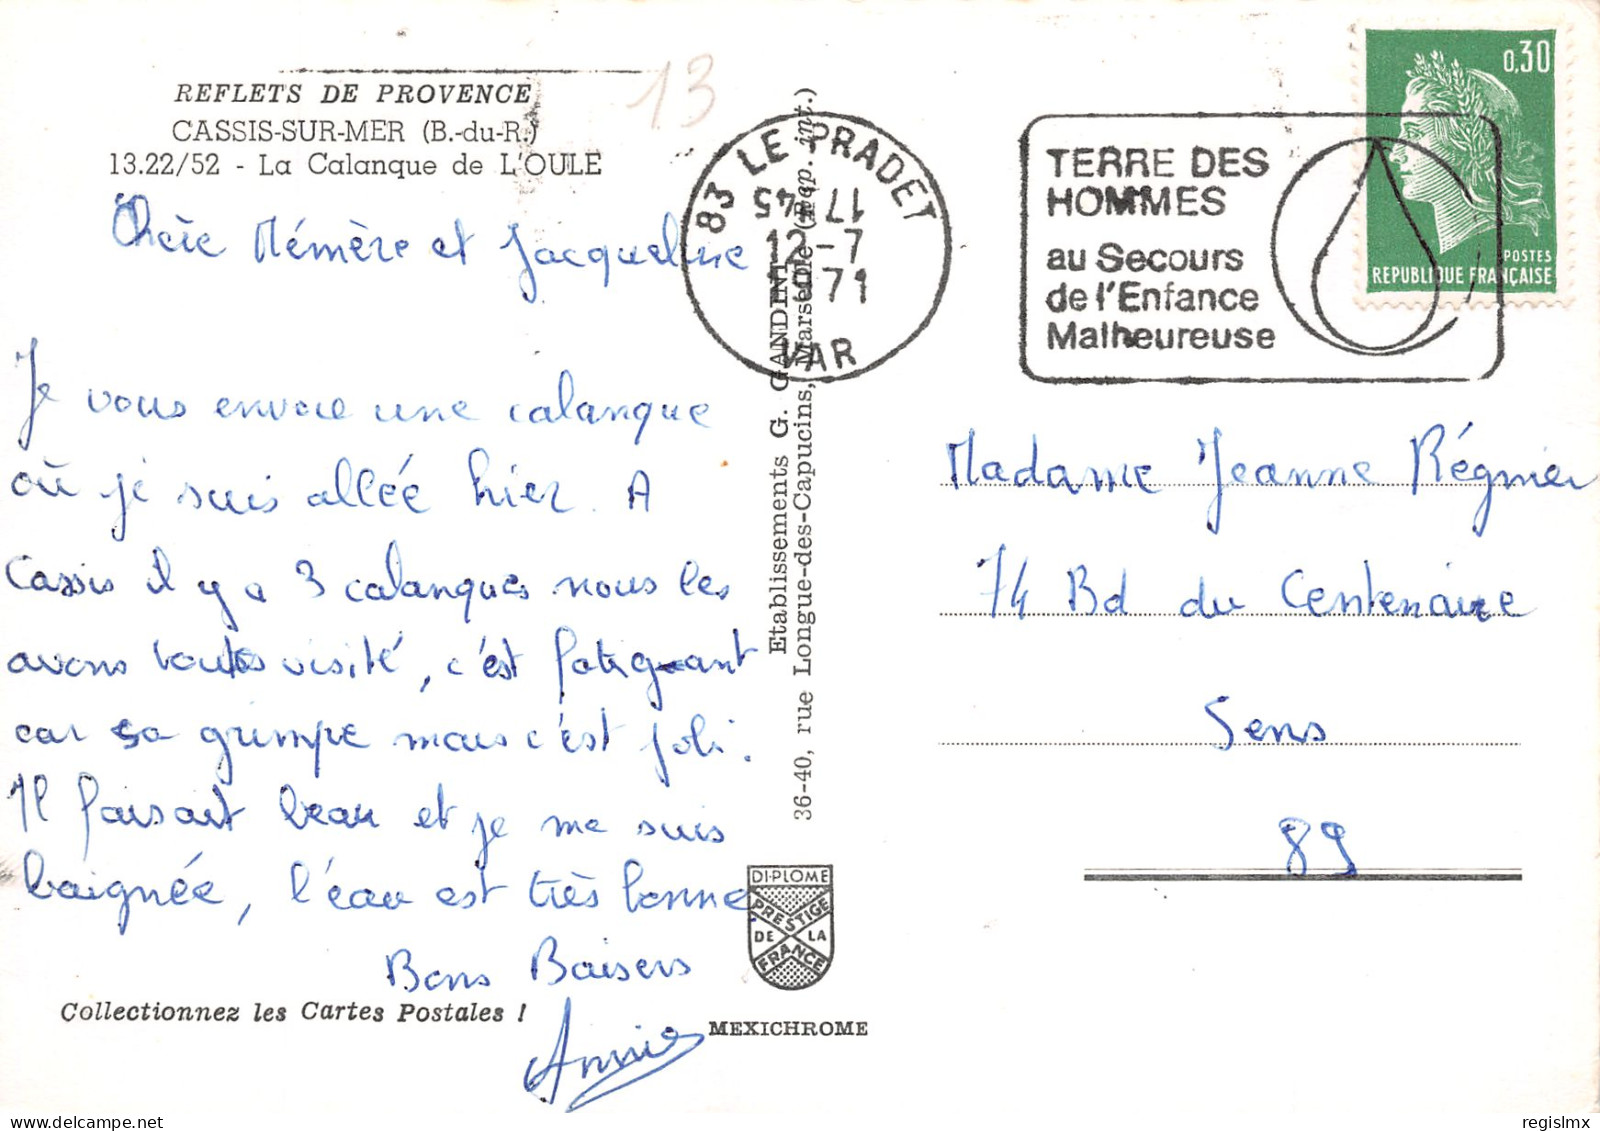 REFLETS DE PROVENCE
CASSIS-SUR-MER (B.-du-R.)
13.22/52 - La Calanque de L'OULE
13
Chère Mémère et Jacqueline
Je vous envoie une calanque
où je suis allée hier. A
Cassis il y a 3 calanques nous les
avons toutes visité, c'est fatiguant
car sa grimpe mais c'est joli.
Il faisait beau et je me suis
baignée, l'eau est très bonne
Bons Baisers
Annie
Collectionnez les Cartes Postales !
Etablissements G. GANDINI
36-40, rue Longue-des-Capucins, Marseille (Rep. int.)
DIPLOME
PRESTIGE
DE LA
FRANCE
MEXICHROME
83 LE PRADET
17 45
12-7
1971
VAR
TERRE DES
HOMMES
au Secours
de l'Enfance
Malheureuse
0,30
POSTES
REPUBLIQUE FRANÇAISE
Madame Jeanne Régnier
74 Bd du Centenaire
Sens
89
regislmx